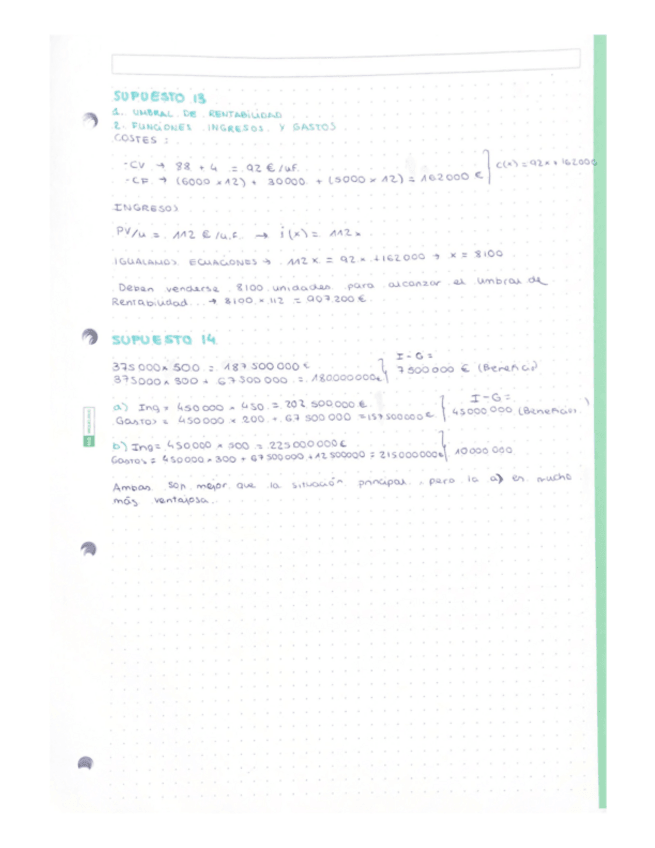 SUPUESTO 13
1. UMBRAL DE RENTABILIDAD
2. FUNCIONES INGRESOS Y GASTOS
COSTES:
-CV → 88 + 4 = 92 €/uF.
-CF → (6000 x12) + 30000 + (5000 x 12) = 162000 € C(x) = 92x + 162000
INGRESOS
PV/u = 112 €/u.f. → i(x) = 112x
IGUALAMOS ECUACIONES → 112x = 92x + 162000 → x = 8100
Deben venderse 8100 unidades para alcanzar el umbral de
Rentabilidad → 8100 x 112 = 907200 €.
SUPUESTO 14
375000 x 500 = 187500000 €
375000 x 300 + 67500000 = 180000000 €
I - G =
7500000 € (Beneficio)
a) Ing = 450000 x 450 = 202500000 €
Gastos = 450000 x 200 + 67500000 = 157500000 €
I - G =
45000000 (Beneficios)
b) Ing = 450000 x 500 = 225000000 €
Gastos = 450000 x 300 + 67500000 + 12500000 = 215000000 € 10000000
Ambas son mejor que la situación principal, pero la a) es mucho
más ventajosa.